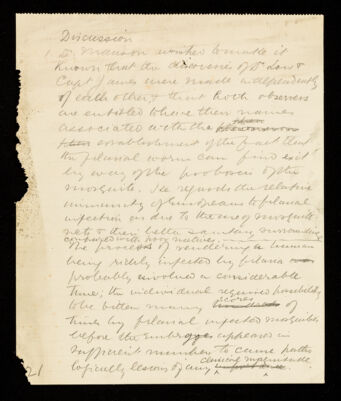 Discussion
1. Dr. Manson wished to make it
known that the discoveries of Dr Low &
Capt James were made independently
of each other, & that both observers
are entitled to have their names
associated with the
establishment of the fact that
the filarial worm can find exit
by way of the proboscis of the
mosquito. He regards the relative
immunity of Europeans to filarial
infection as due to the use of mosquito
nets & their better sanitary surroundings
compared with poor natives.
The process of rendering a human
being richly infected by filaria
probably involved a considerable
time; the individual required probably
to be bitten many scores of
times by filarial infected mosquitoes
before the embryos appeared in
sufficient number to cause patho
logically lesions of any clinical magnitude
21